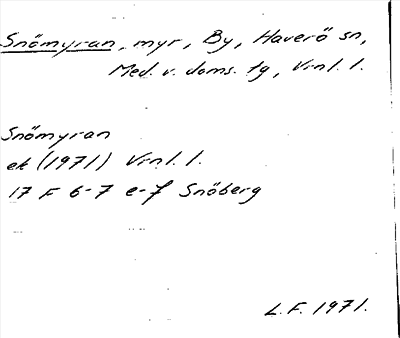 Snömyran, myr, By, Haverö sn,
Med. v. doms. tg, Vrnl. l.
Snömyran
ek (1971) Vrnl. l.
17 F 6-7 e-f Snöberg
L.F. 1971.